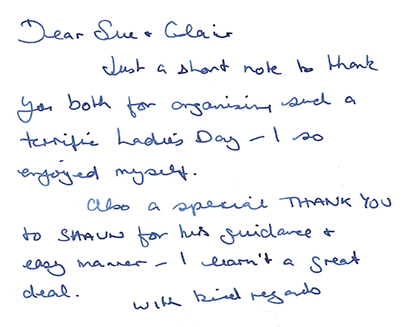 Dear Sue + Clair
Just a short note to thank
you both for organising such a
terrific Ladies Day - I so
enjoyed myself.
Also a special THANK YOU
to SHAUN for his guidance +
easy manner - I learn't a great
deal.
With kind regards